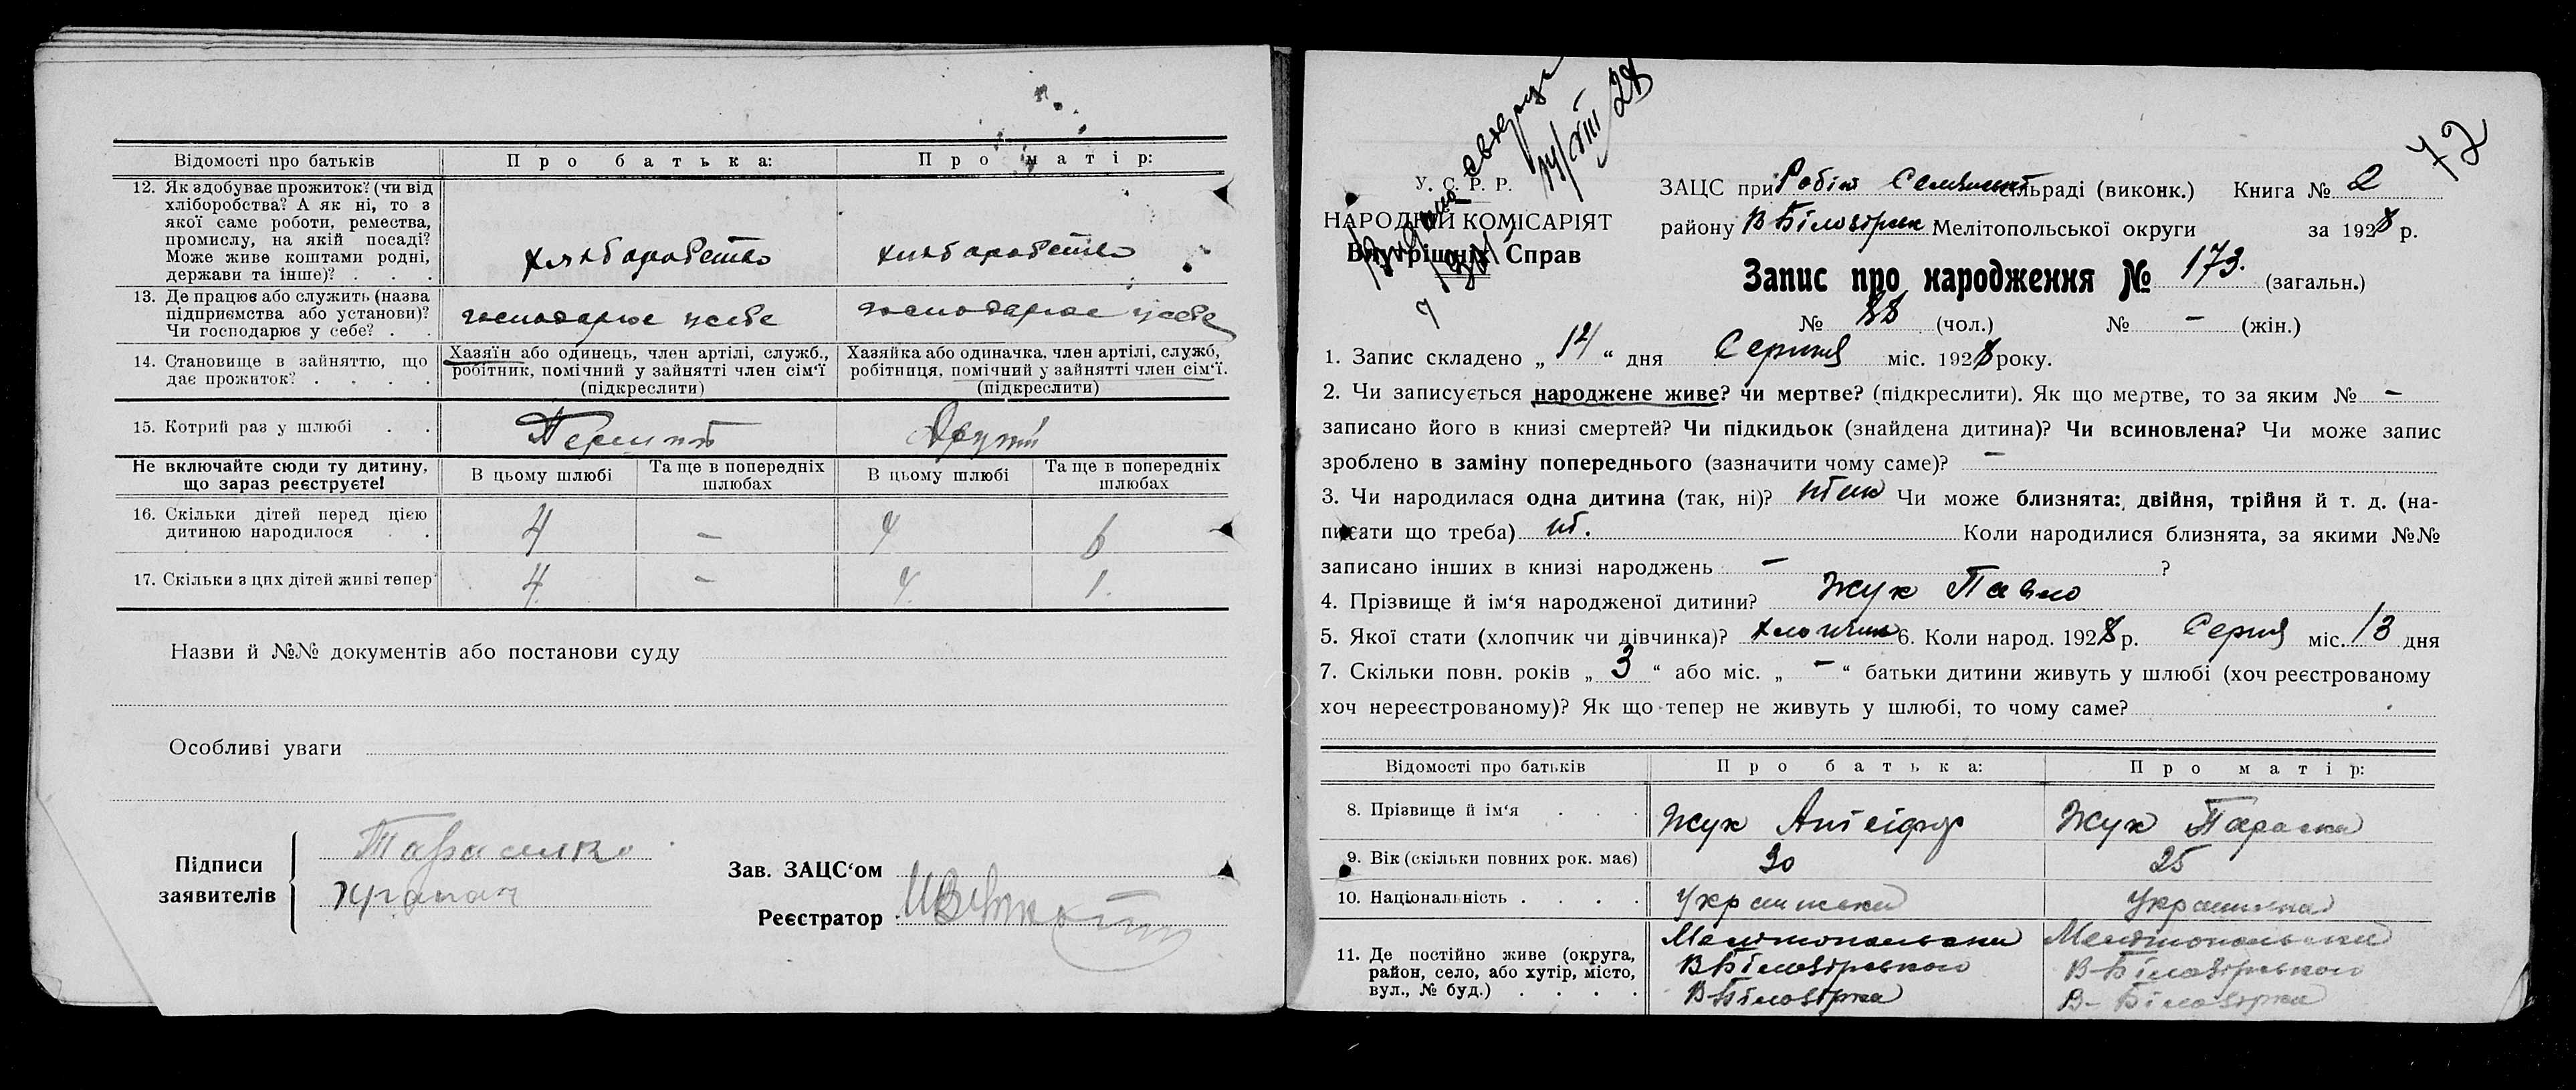 Відомості про батьків
Про батька:
Про матір:
12. Як здобуває прожиток? (чи від
хліборобства? А як ні, то з
якої саме роботи, ремества,
промислу, на якій посаді?
Може живе коштами родні,
держави та інше)? . . .
хліборобство
хліборобство
13. Де працює або служить (назва
підприємства або установи)?
Чи господарює у себе? . .
господарює у себе
господарює у себе
14. Становище в зайняттю, що
дає прожиток? . . . .
Хазяїн або одинець, член артілі, служб.,
робітник, помічний у зайнятті член сім‘ї
(підкреслити)
Хазяйка або одиначка, член артілі, служб,
робітниця, помічний у зайнятті член сім‘ї.
(підкреслити)
15. Котрий раз у шлюбі . .
Перший
Другий
Не включайте сюди ту дитину,
що зараз реєструєте!
В цьому шлюбі
Та ще в попередніх
шлюбах
В цьому шлюбі
Та ще в попередніх
шлюбах
16. Скільки дітей перед цією
дитиною народилося . .
4 - 4 6
17. Скільки з цих дітей живі тепер
4. - 4. 1.
Назви й №№ документів або постанови суду
Особливі уваги
Підписи
заявителів
Зав. ЗАЦС‘ом
Реєстратор
72
14/VIII 28
У. С. Р. Р.
НАРОДНИЙ КОМІСАРІЯТ
Внутрішніх Справ
ЗАЦС при сільраді (виконк.) Книга № 2
району В Білозірськ Мелітопольської округи за 1928 р.
Запис про народження № 173. (загальн.)
№ 88 (чол.) № - (жін.)
1. Запис складено „ 14 “ дня Серпня міс. 1928 року.
2. Чи записується народжене живе? чи мертве? (підкреслити). Як що мертве, то за яким № -
записано його в книзі смертей? Чи підкидьок (знайдена дитина)? Чи всиновлена? Чи може запис
зроблено в заміну попереднього (зазначити чому саме)? -
3. Чи народилася одна дитина (так, ні)? так Чи може близнята: двійня, трійня й т. д. (на-
писати що треба) ні. Коли народилися близнята, за якими №№
записано інших в книзі народжень - ?
4. Прізвище й ім‘я народженої дитини? Жук Павло
5. Якої стати (хлопчик чи дівчинка)? хлопчик 6. Коли народ. 1928 р. Серпня міс. 13 дня
7. Скільки повн. років „ 3 “ або міс. „ - “ батьки дитини живуть у шлюбі (хоч реєстрованому
хоч нереєстрованому)? Як що тепер не живуть у шлюбі, то чому саме?
Відомості про батьків
Про батька:
Про матір:
8. Прізвище й ім‘я . . .
Жук
Жук Параска
9. Вік (скільки повних рок. має)
30
25
10. Національність . . . .
Українська
Українська
11. Де постійно живе (округа,
район, село, або хутір, місто,
вул., № буд.) . . . .
Мелітопольська
В-Білозірського
В-Білозірка
Мелітопольська
В-Білозірського
В-Білозірка